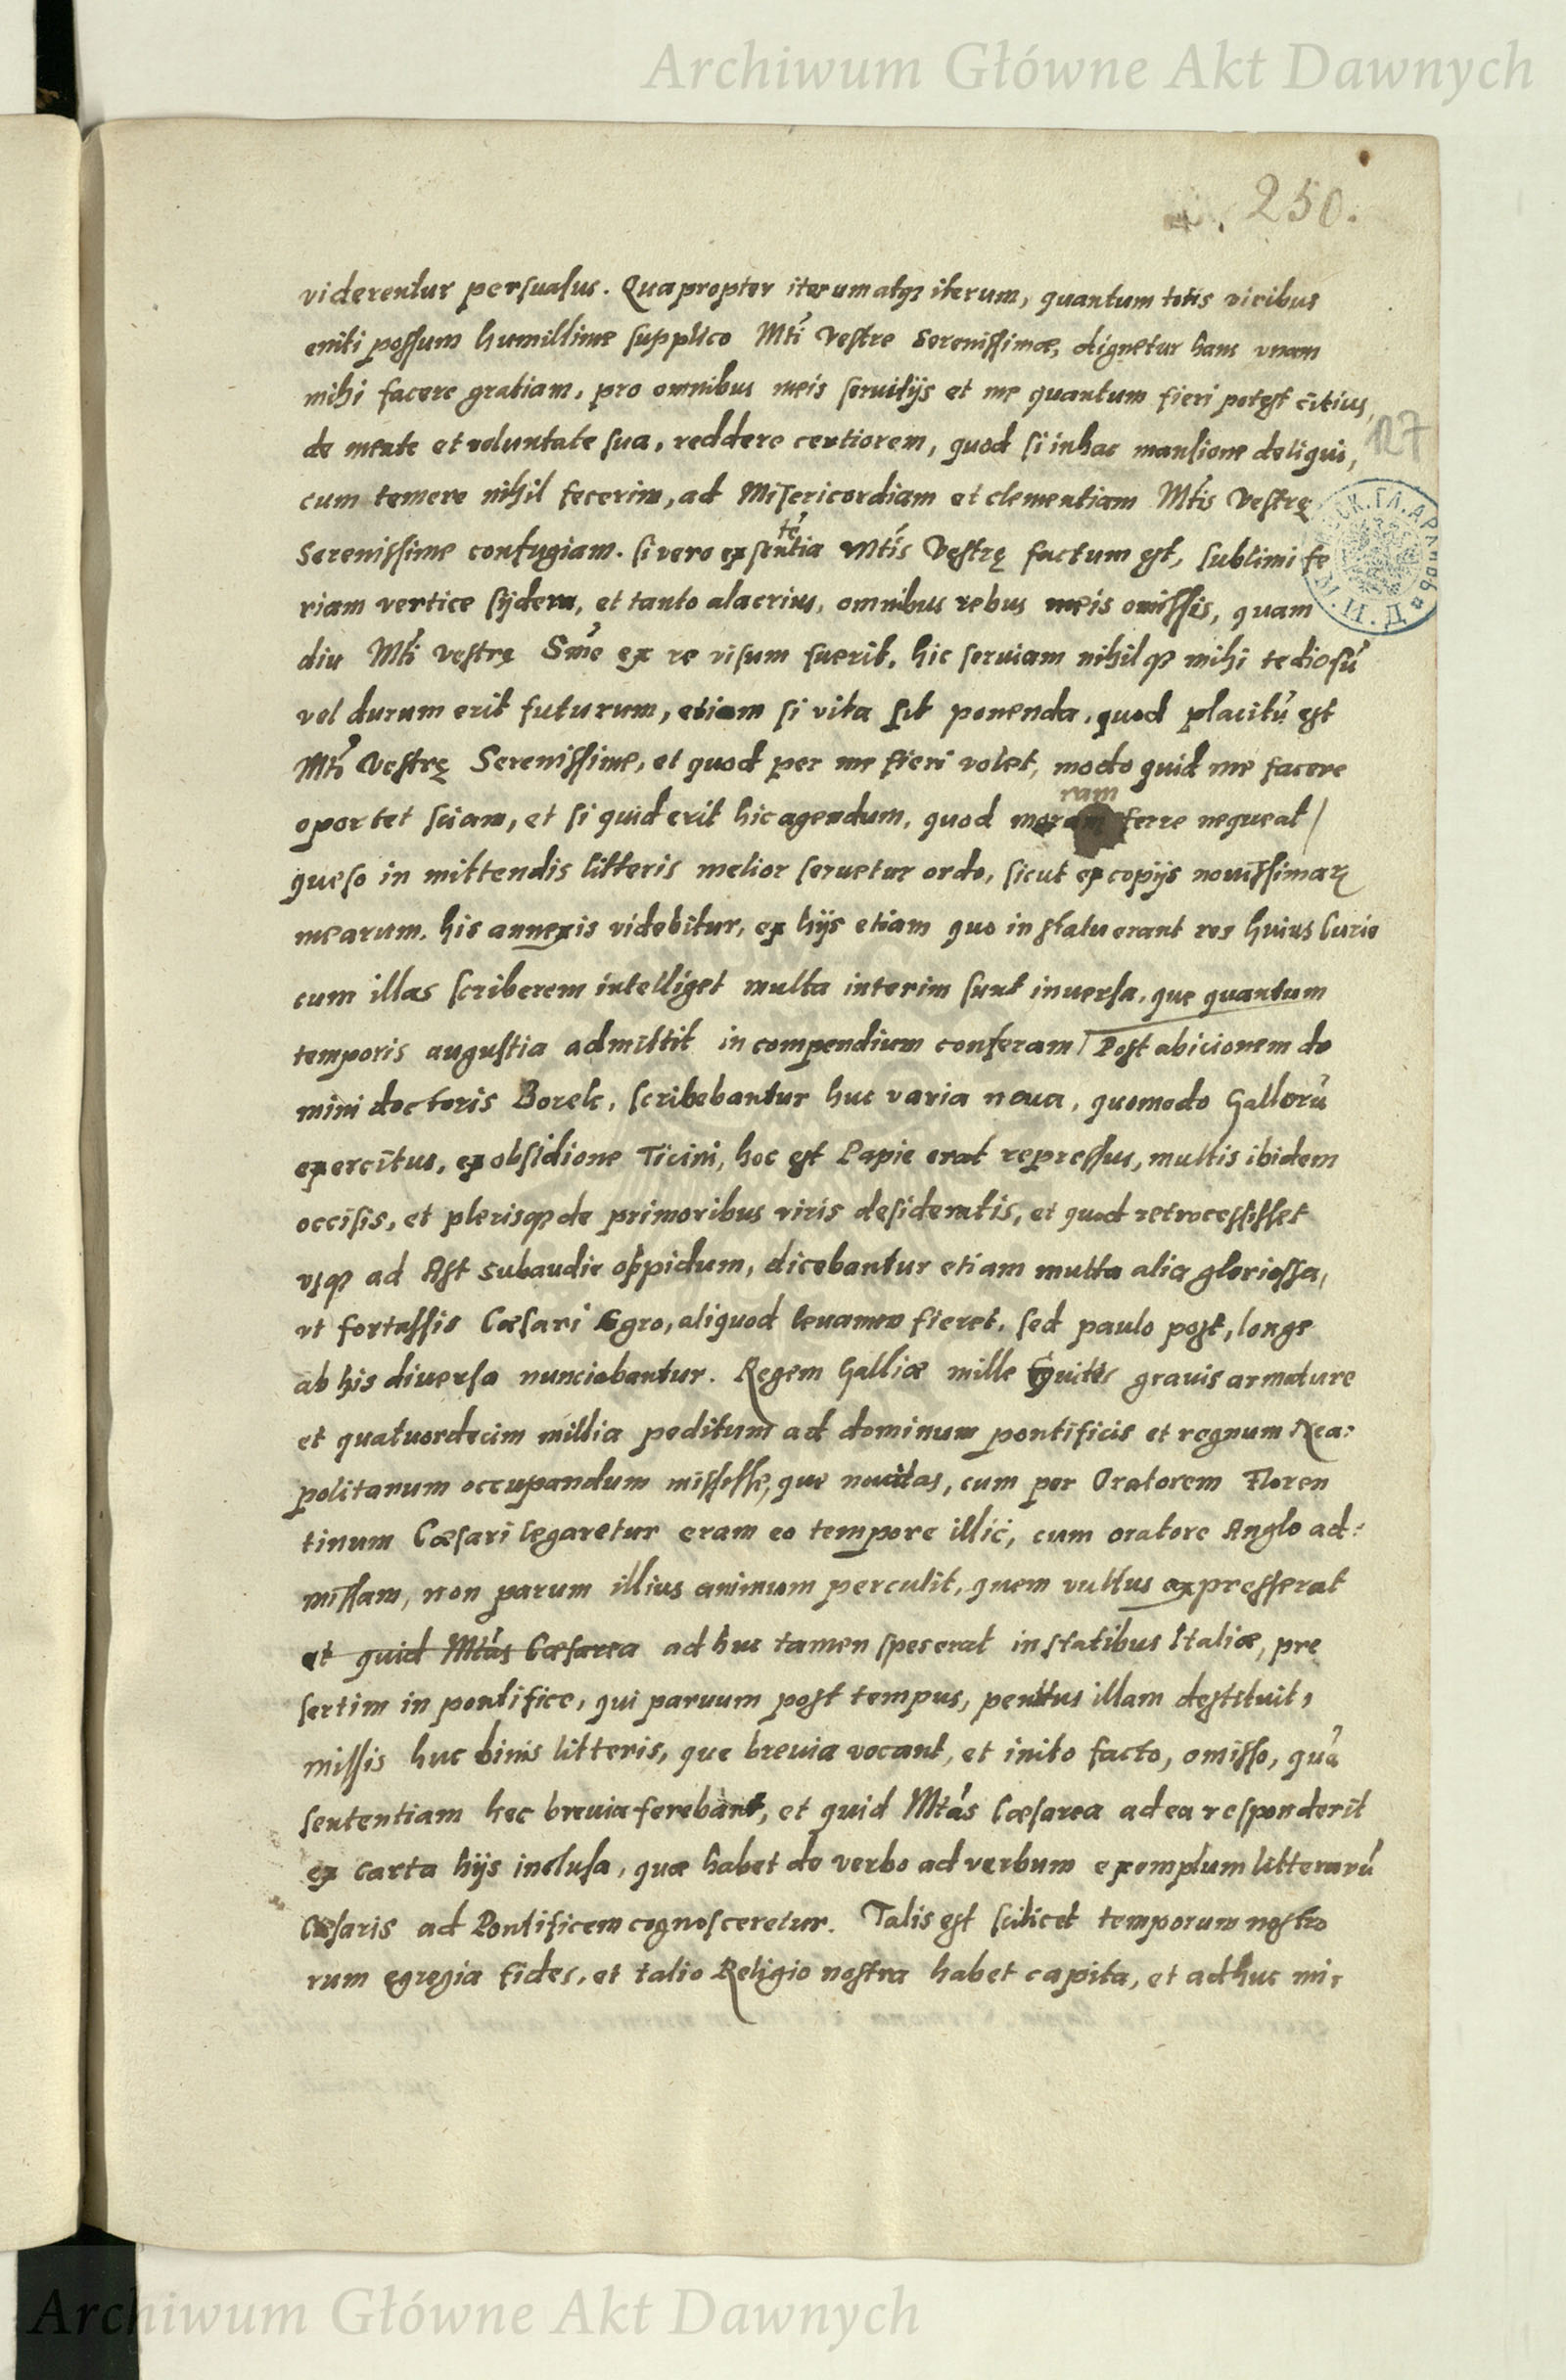 Archiwum Główne Akt Dawnych
250.
viderentur persuasus. Quapropter iterum atq3 iterum, quantum totis viribus
eniti possum humillime supplico Mti Vestre Serenissimæ, dignetur hanc vnam
mihi facere gratiam, pro omnibus meis seruitijs et me quantum fieri potest citius,
de mente et voluntate sua, reddere certiorem, quod si in hac mansione deliqui,
127
cum temere nihil fecerim, ad Misericordiam et clementiam Mtis Vestrę
Serenissime confugiam. si vero ex sententia Mtis Vestrę factum est, sublimi fe
riam vertice sijdera, et tanto alacrius, omnibus rebus meis omissis, quam
diu Mti Vestrę Sme ex re visum fuerit, hic seruiam nihilq3 mihi tediosū
vel durum erit futurum, etiam si vita sit ponenda, quod placitū est
Mti Vestrę Serenissime, et quod per me fieri volet, modo quid me facere
oportet sciam, et si quid erit hic agendum, quod moram ferre nequeat /
queso in mittendis litteris melior seruetur ordo, sicut ex copijs nouissimarz
mearum. his annexis videbitur, ex hijs etiam quo in statu erant res huius Curie
cum illas scriberem intelliget multa interim sunt inuersa, que quantum
temporis angustia admittit in compendium conferam / Post abicionem do
mini doctoris Borek, scribebantur huc varia noua, quomodo Gallorū
exercitus, ex obsidione Ticini, hoc est Papie erat repressus, multis ibidem
occisis, et plerisq3 de primoribus viris desideratis, et quod retrocessisset
vsq3 ad Ast Subaudie oppidum, dicebantur etiam multa alia gloriossa,
vt fortassis Cæsari Egro, aliquod leuamen fieret, sed paulo post, longe
ab his diuersa nunciabantur. Regem Galliæ mille Equites grauis armature
et quatuordecim millia peditum ad dominum pontificis et regnum Nea:
politanum occupandum mississe, que nouitas, cum per Oratorem Floren
tinum Cæsari legaretur eram eo tempore illic, cum oratore Anglo ad:
missam, non parum illius animum perculit, quem vultus expresserat
et quid Mtas Cæsarea ad huc tamen spes erat in statibus Italiæ, prę
sertim in pontifice, qui paruum post tempus, penitus illam destituit,
missis huc binis litteris, que breuia vocant, et inito facto, omisso, quā
sententiam hec breuia ferebant, et quid Mtas Cæsarea ad ea responderit
ex carta hijs inclusa, quæ habet de verbo ad verbum exemplum litterarū
Cæsaris ad Pontificem cognosceretur. Talis est scilicet temporum nostro
rum egregia fides, et talio Religio nostra habet capita, et adhuc mi,
Archiwum Główne Akt Dawnych